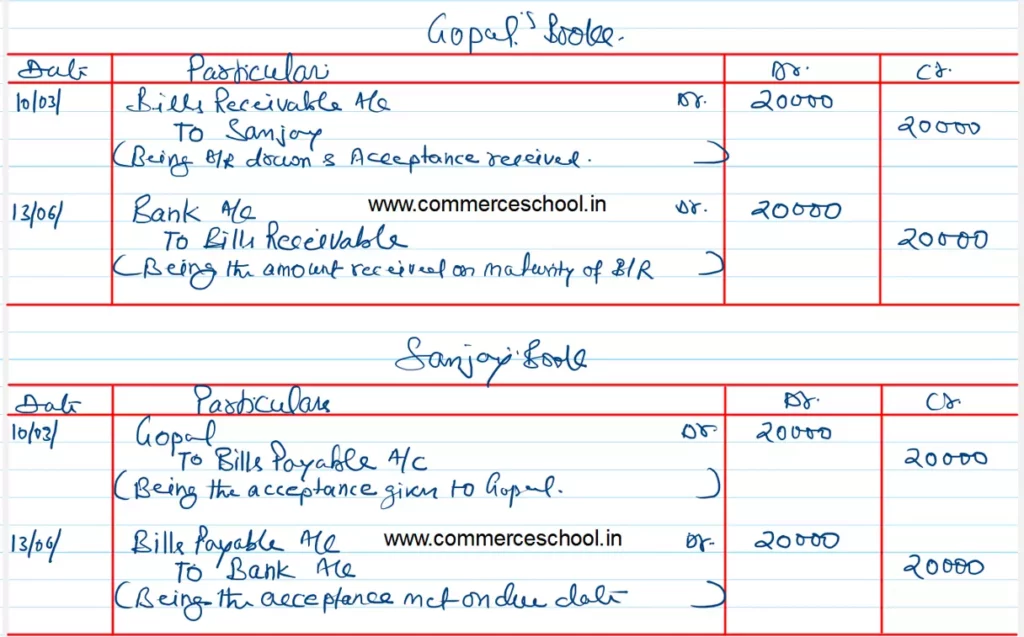 Gopal's Book.
Date Particulars Dr. Cr.
10/03/ Bills Receivable A/c Dr. 20000
To Sanjay 20000
(Being B/R drawn & Acceptance received. )
13/06/ Bank A/c www.commerceschool.in Dr. 20000
To Bills Receivable 20000
(Being the amount received on maturity of B/R )
Sanjay Book
Date Particulars Dr. Cr.
10/03/ Gopal Dr. 20000
To Bills Payable A/c 20000
(Being the acceptance given to Gopal. )
13/06/ Bills Payable A/c www.commerceschool.in Dr. 20000
To Bank A/c 20000
(Being the acceptance met on due date )